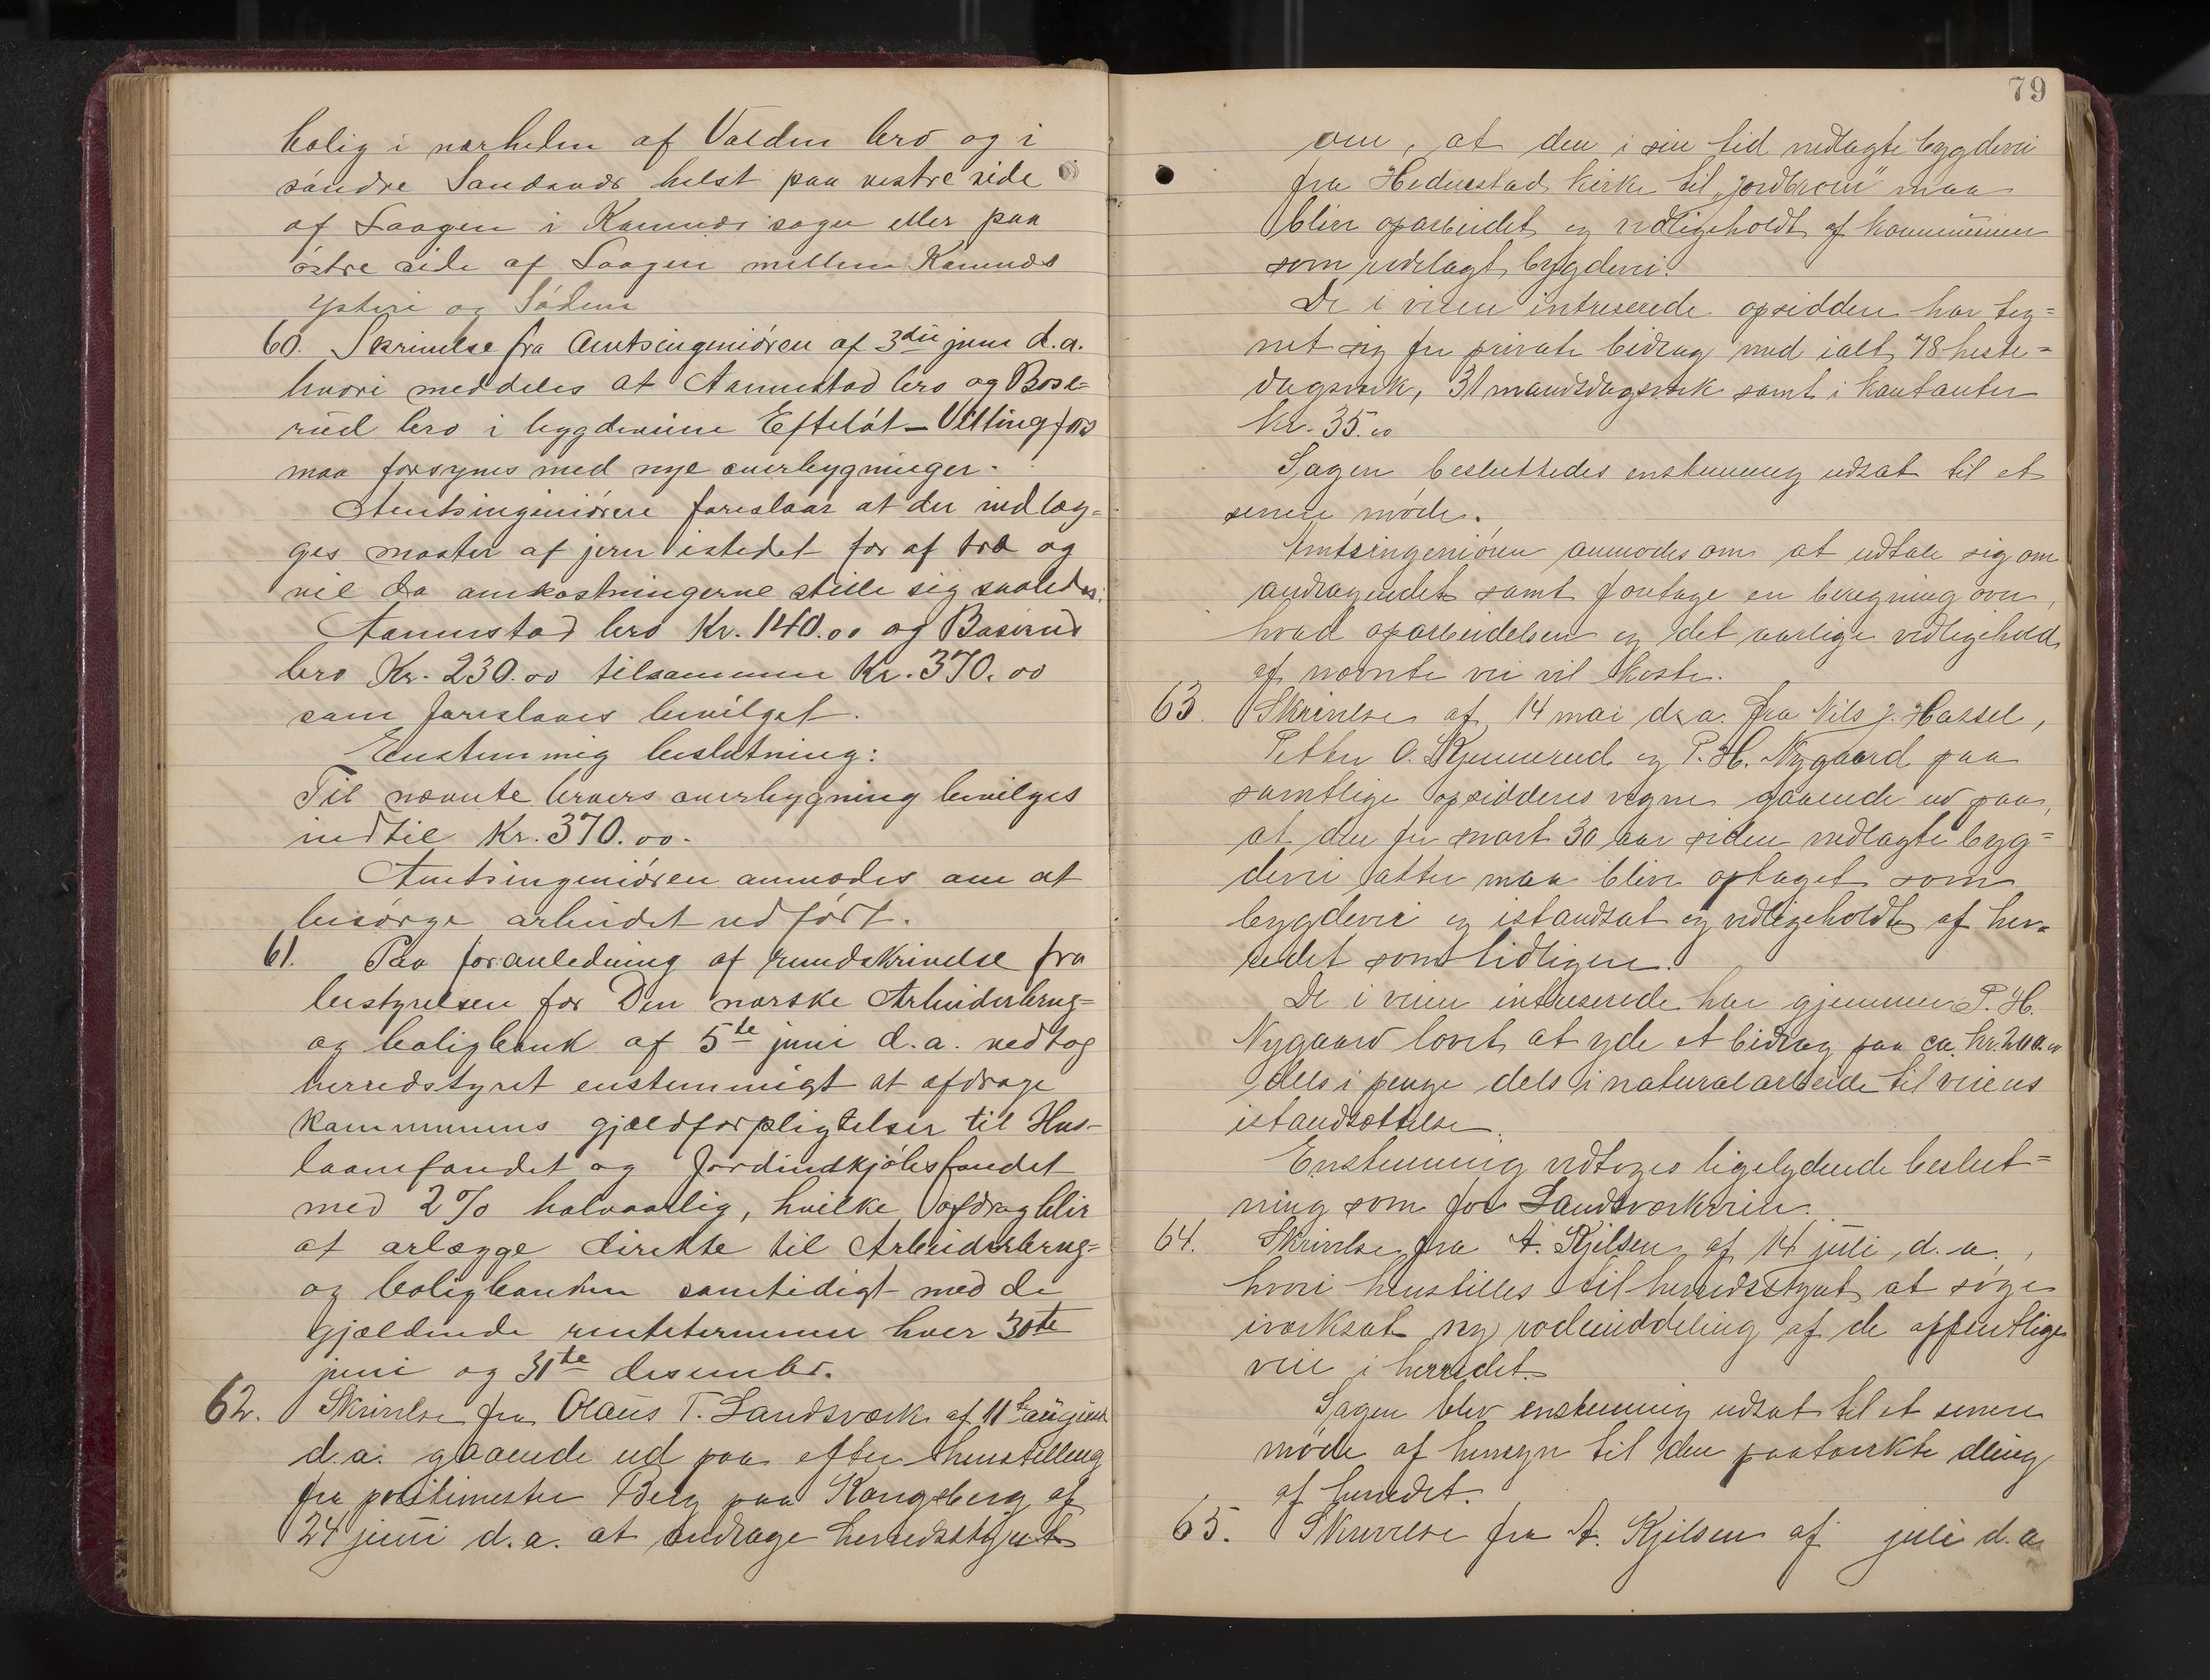 bolig i nærheden af Valden bro og i
søndre Sandsvær helst paa vestre side
af Laagen i Komnes sogn eller paa
østre side af Laagen mellem Komnes
ysteri og
60. Skrivelse fra Amtsingeniøren af 3die juni d.a.
hvori meddeles at Aannestad bro og Bose-
rud bro i bygdeveiene Efteløt – Vittingfos
maa forsynes med nye overbygninger.
Amtsingeniøren foreslaar at der indlæg-
ges master af jern istedet for af træ og
vil da omkostningerne stille sig saaledes:
Aannestad bro Kr. 140.00 og Baserud
bro Kr. 230.00 tilsammen Kr. 370.00
som foreslaaes bevilget.
Enstemmig beslutning:
Til nævnte broers overbygning bevilges
indtil Kr. 370.00.
Amtsingeniøren anmodes om at
besørge arbeidet udført.
61. Paa foranledning af rundskrivelse fra
bestyrelsen for Den norske Arbeiderbrug=
og boligbank af 5te juni d.a. vedtog
herredstyret enstemmigt at afdrage
kommunens gjældforpligtelser til Hus-
laanefondet og Jordindkjøbsfondet
med 2 % halvaarlig, hvilke afdrag blir
at erlægge direkte til Arbeiderbrug=
og boligbanken samtidigt med de
gjældende renteterminer hver 30te
juni og 31te desember.
62. Skrivelse fra Olaus T. Landsværk af 11te august
d.a. gaaende ud paa efter henstilling
fra politimester Berg paa Kongsberg af
24 juni d.a. at andrage herredsstyret
79
om, at den i sin tid nedlagte bygdevei
fra Hedenstad kirke til "Jordbroen" maa
blive oparbeidet og vedligeholdt af kommunen
som rodelagt bygdevei.
De i veien intreserede opsiddere har teg=
net sig for private bidrag med ialt 78 heste=
dagsværk, 31 mandsdagsværk samt i kontanter
kr. 35.00
Sagen besluttedes enstemmig udsat til et
senere møde.
Amtsingeniøren anmodes om at udtale sig om
andragendet samt foretage en beregning over,
hvad oparbeidelsen og det aarlige vedligehold
af nævnte vei vil koste.
63. Skrivelse af 14 mai d.a. fra Nils J. Hassel,
Petter O. Skjennerud og P. H. Nygaard paa
samtlige opsidderes vegne gaaende ud paa,
at den for snart 30 aar siden nedlagte byg=
devei atter maa blive optaget som
bygdevei og istandsat og vedligeholdt af her-
redet som tidligere.
De i veien intreserede har gjennem P. H.
Nygaard lovet at yde et bidrag paa ca. kr. 200.00
dels i penge dels i naturalarbeide til veiens
istandsættelse.
Enstemmig vedtoges ligelydende beslut=
ning som for Landsværkveien.
64. Skrivelse fra A. Kjilsen af 14 juli d.a.,
hvori henstilles til herredsstyret at søge
iverksat ny rodeinddeling af de offentlige
veie i herredet.
Sagen blev enstemmig udsat til et senere
møde af hensyn til den paatænkte deling
af herredet.
65. Skrivelse fra A. Kjilsen af juli d.a